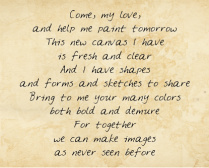 Come, my love,
and help me paint tomorrow
This new canvas I have
is fresh and clear
And I have shapes
and forms and sketches to share
Bring to me your many colors
both bold and demure
For together
we can make images
as never seen before